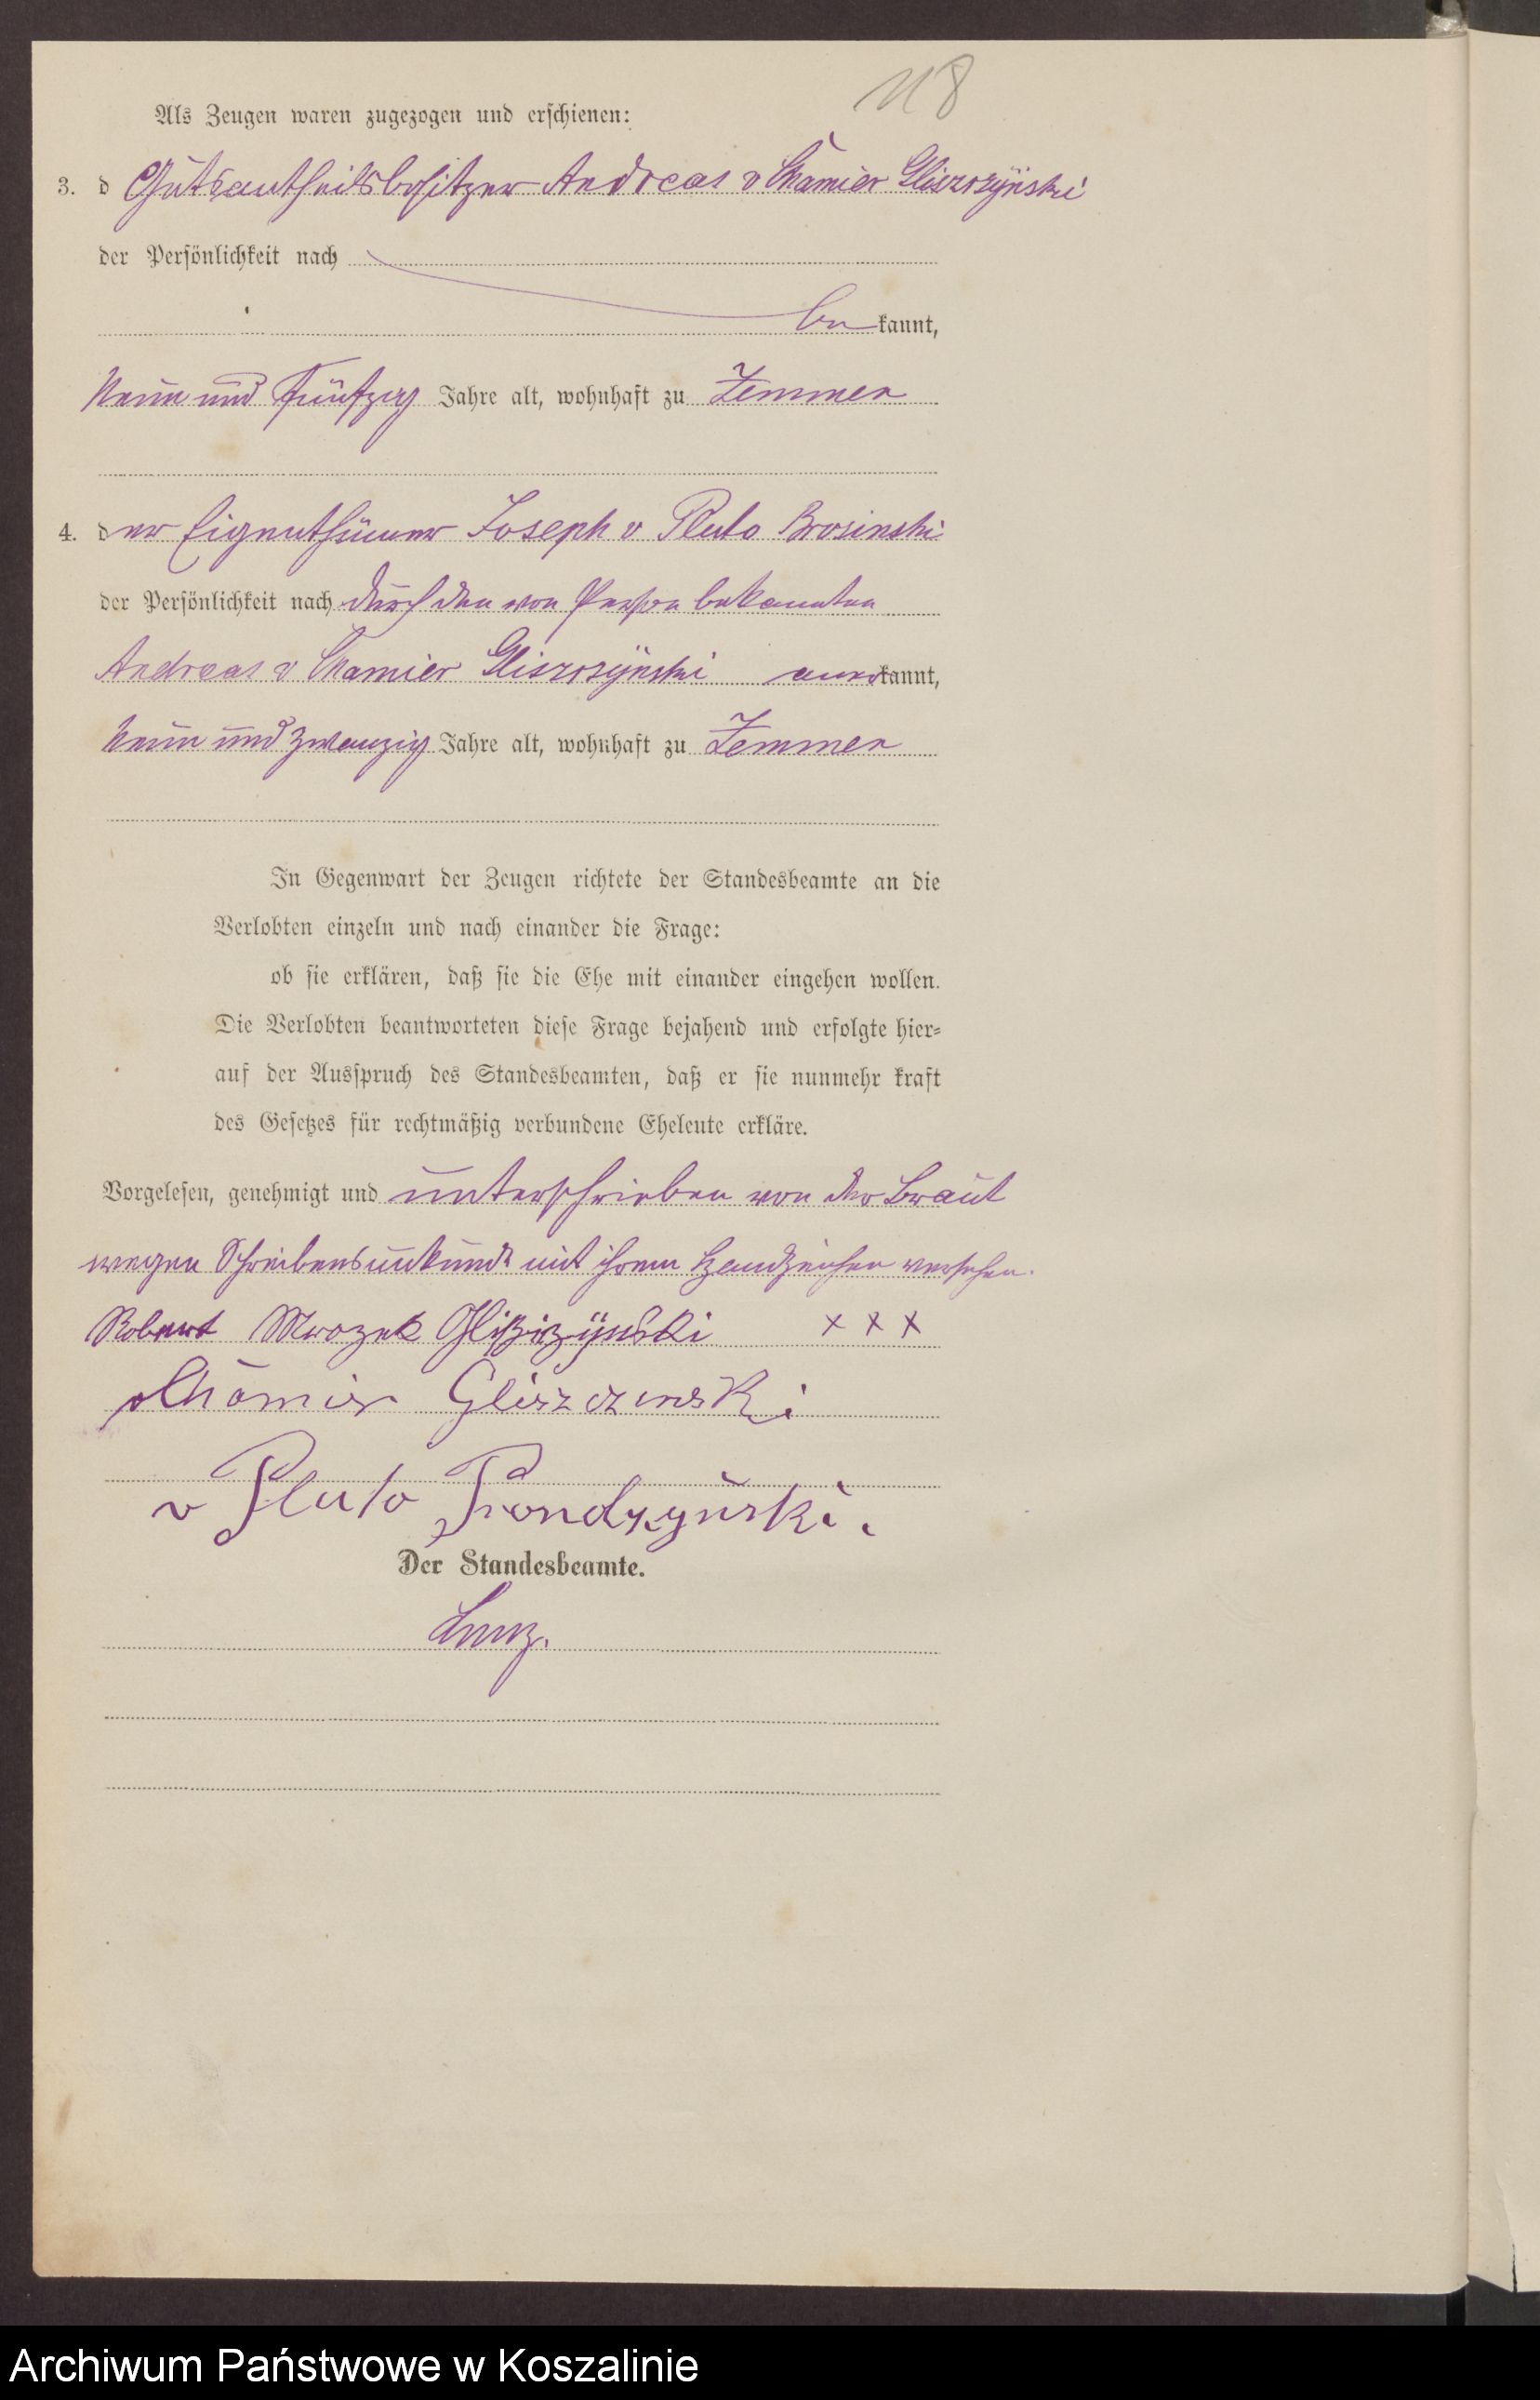 118
Als Zeugen waren zugezogen und erschienen:
3. d Gutsantheilsbesitzer Andreas v Chamier Gliszczynski
der Persönlichkeit nach
be kannt,
Neun und Fünfzig Jahre alt, wohnhaft zu Zemmen
4. der Eigenthümer Joseph v Pluto Brosinski
der Persönlichkeit nach durch den von Person bekannten
Andreas v Chamier Gliszczynski anerkannt,
Neun und zwanzig Jahre alt, wohnhaft zu Zemmen
In Gegenwart der Zeugen richtete der Standesbeamte an die
Verlobten einzeln und nach einander die Frage:
ob sie erklären, daß sie die Ehe mit einander eingehen wollen.
Die Verlobten beantworteten diese Frage bejahend und erfolgte hier-
auf der Ausspruch des Standesbeamten, daß er sie nunmehr kraft
des Gesetzes für rechtmäßig verbundene Eheleute erkläre.
Vorgelesen, genehmigt und unterschrieben von der Braut
wegen Schreibensunkunde mit ihrem Handzeichen versehen.
Robert Mrozek Glißczynski x x x
v Chamier Gliszczinski
v Pluto Prondzynski.
Der Standesbeamte.
Archiwum Państwowe w Koszalinie